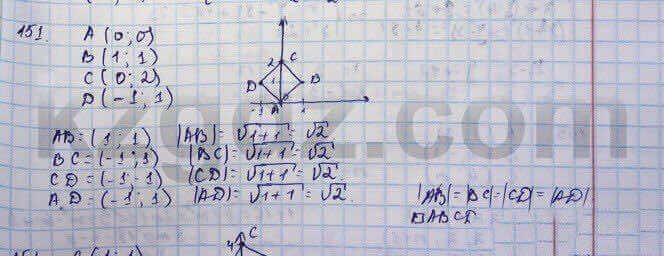 151. A (0; 0)
B (1; 1)
C (0; 2)
D (-1; 1)
2 C
D 1 B
-1 A 0 1
AB = (1; 1) |AB| = √1+1 = √2
BC = (-1; 1) |BC| = √1+1 = √2
CD = (-1; -1) |CD| = √1+1 = √2
AD = (-1; 1) |AD| = √1+1 = √2.
|AB| = |BC| = |CD| = |AD|
□ABCD
4 C
kzgdz.com